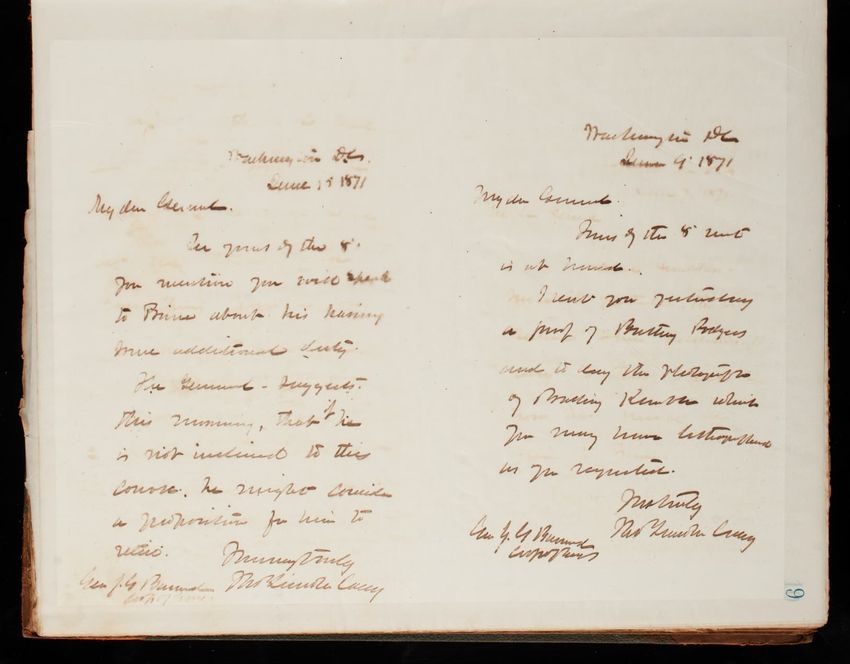 Washington DC.
June 1871
My dear General.
In yours of the 8"
you mention you will speak
to Prime about his having
some additional duty.
The General suggests
this morning, that if he
is not inclined to this
course, he might consider
a proposition for him to
retire.
Very truly
Gen J. G Barnard Thos Lincoln Casey
Corps of Engrs
Washington DC
June 9" 1871
My dear General.
Yours of the 8" inst
is at hand.
I sent you yesterday
a proof of Battery Rodgers
and to day the photograph
of which
you may have lithographed
as you requested.
Yrs truly
Gen J. G Barnard Thos Lincoln Casey
Corps of Engrs